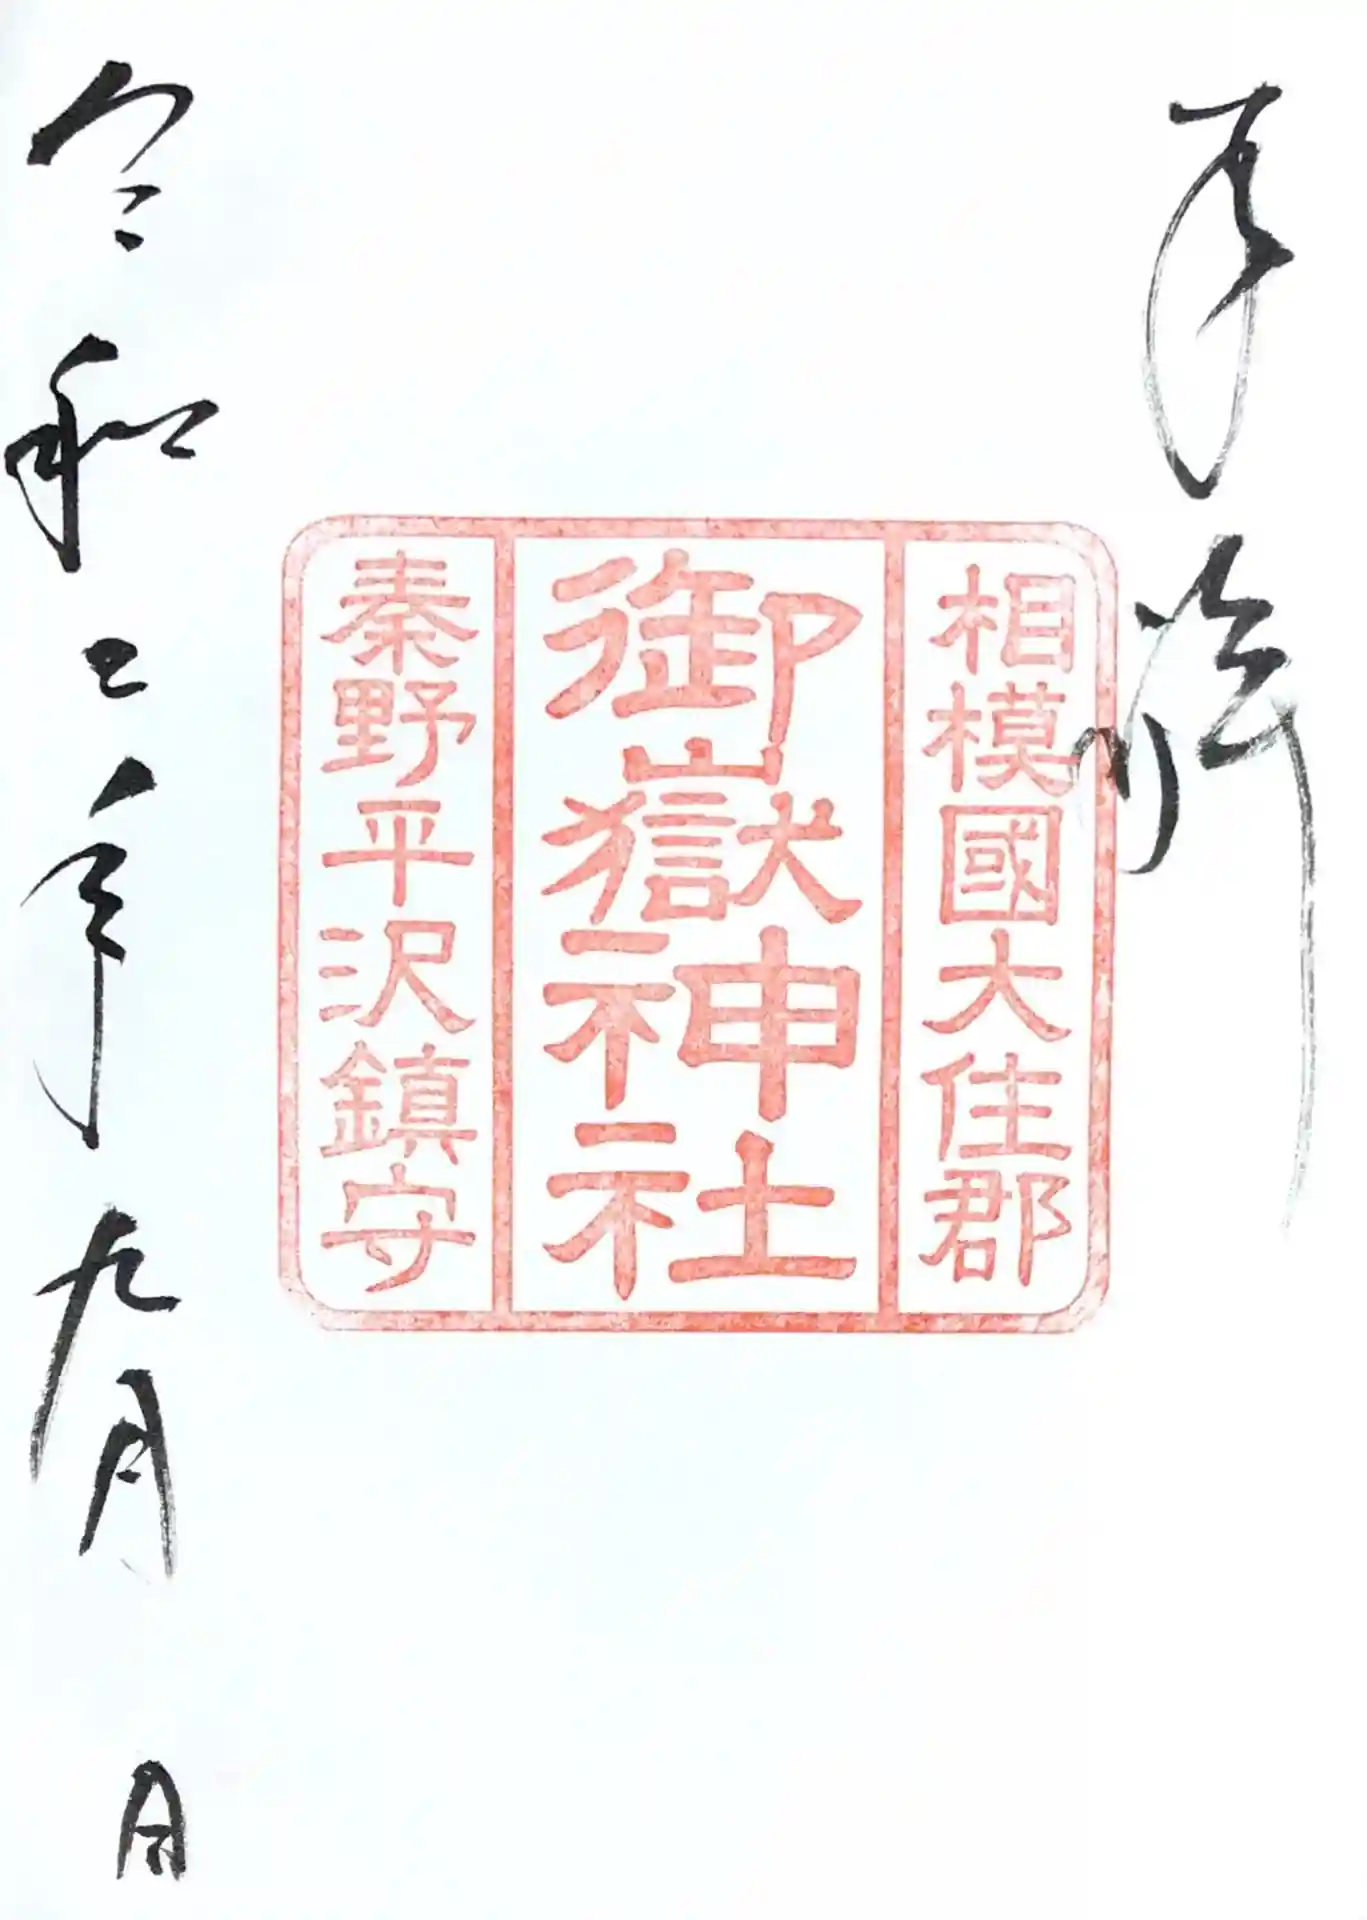 相模國大住郡
御嶽神社
秦野平沢鎮守
令和二年九月 日